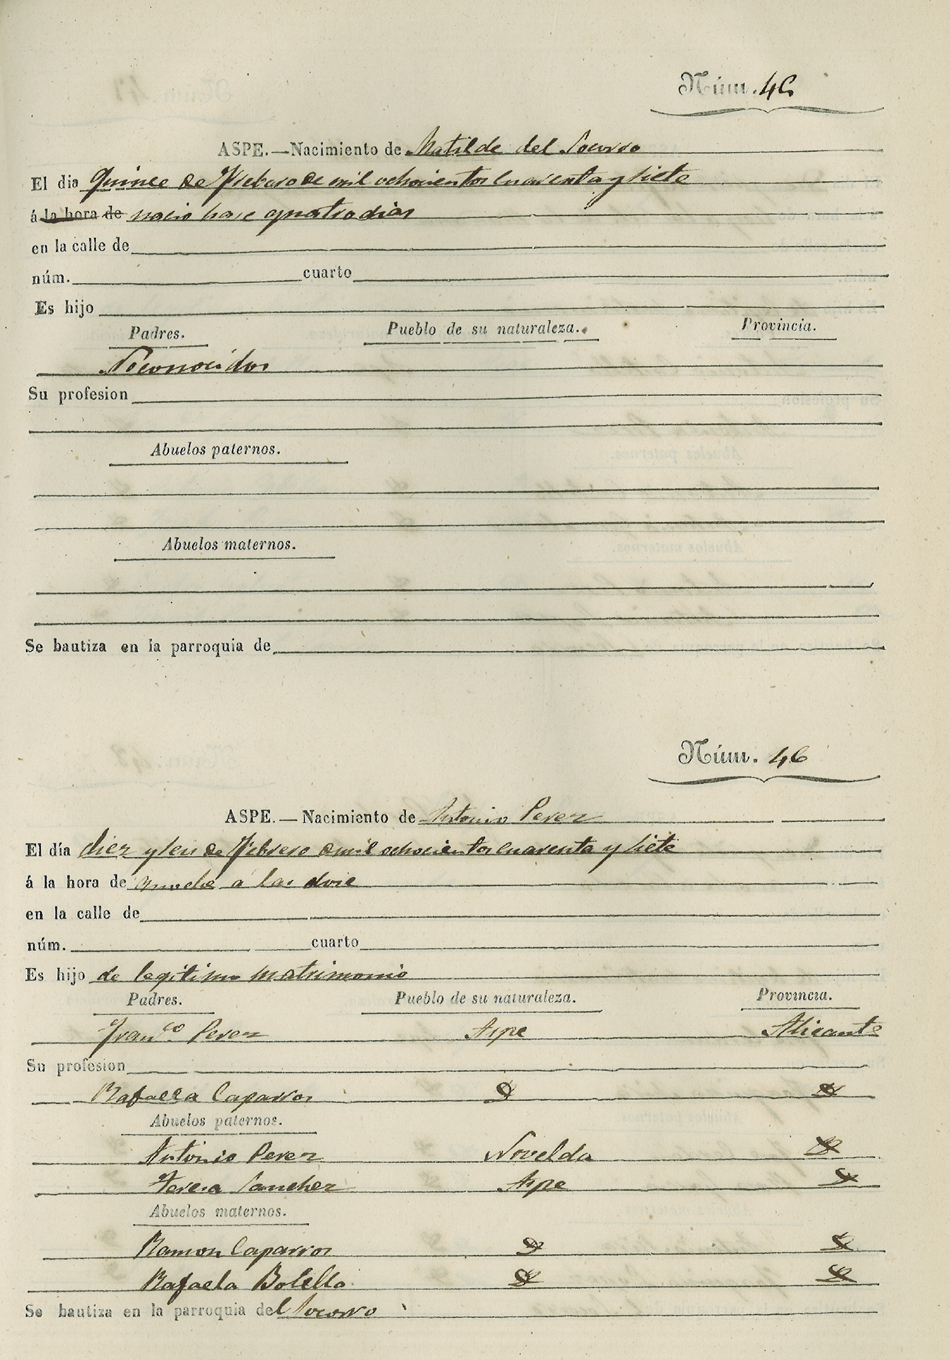 Núm. 46
ASPE.—Nacimiento de Matilde del Socorro
El dia quince de Febrero de mil ochocientos cuarenta y siete
á la hora de nacio hace quatro dias
en la calle de
núm. cuarto
Es hijo
Padres. Pueblo de su naturaleza. Provincia.
Su profesion
Abuelos paternos.
Abuelos maternos.
Se bautiza en la parroquia de
Núm. 46
ASPE.—Nacimiento de Antonio Perez
El día diez y seis de Febrero de mil ochocientos cuarenta y siete
á la hora de anoche a las doce
en la calle de
núm. cuarto
Es hijo de legitimo matrimonio
Padres. Pueblo de su naturaleza. Provincia.
Franco. Perez Aspe Alicante
Su profesion
Rafaela Caparros
Abuelos paternos.
Antonio Perez Novelda
Teresa Sanchez Aspe
Abuelos maternos.
Ramon Caparros
Rafaela Botella
Se bautiza en la parroquia del Socorro